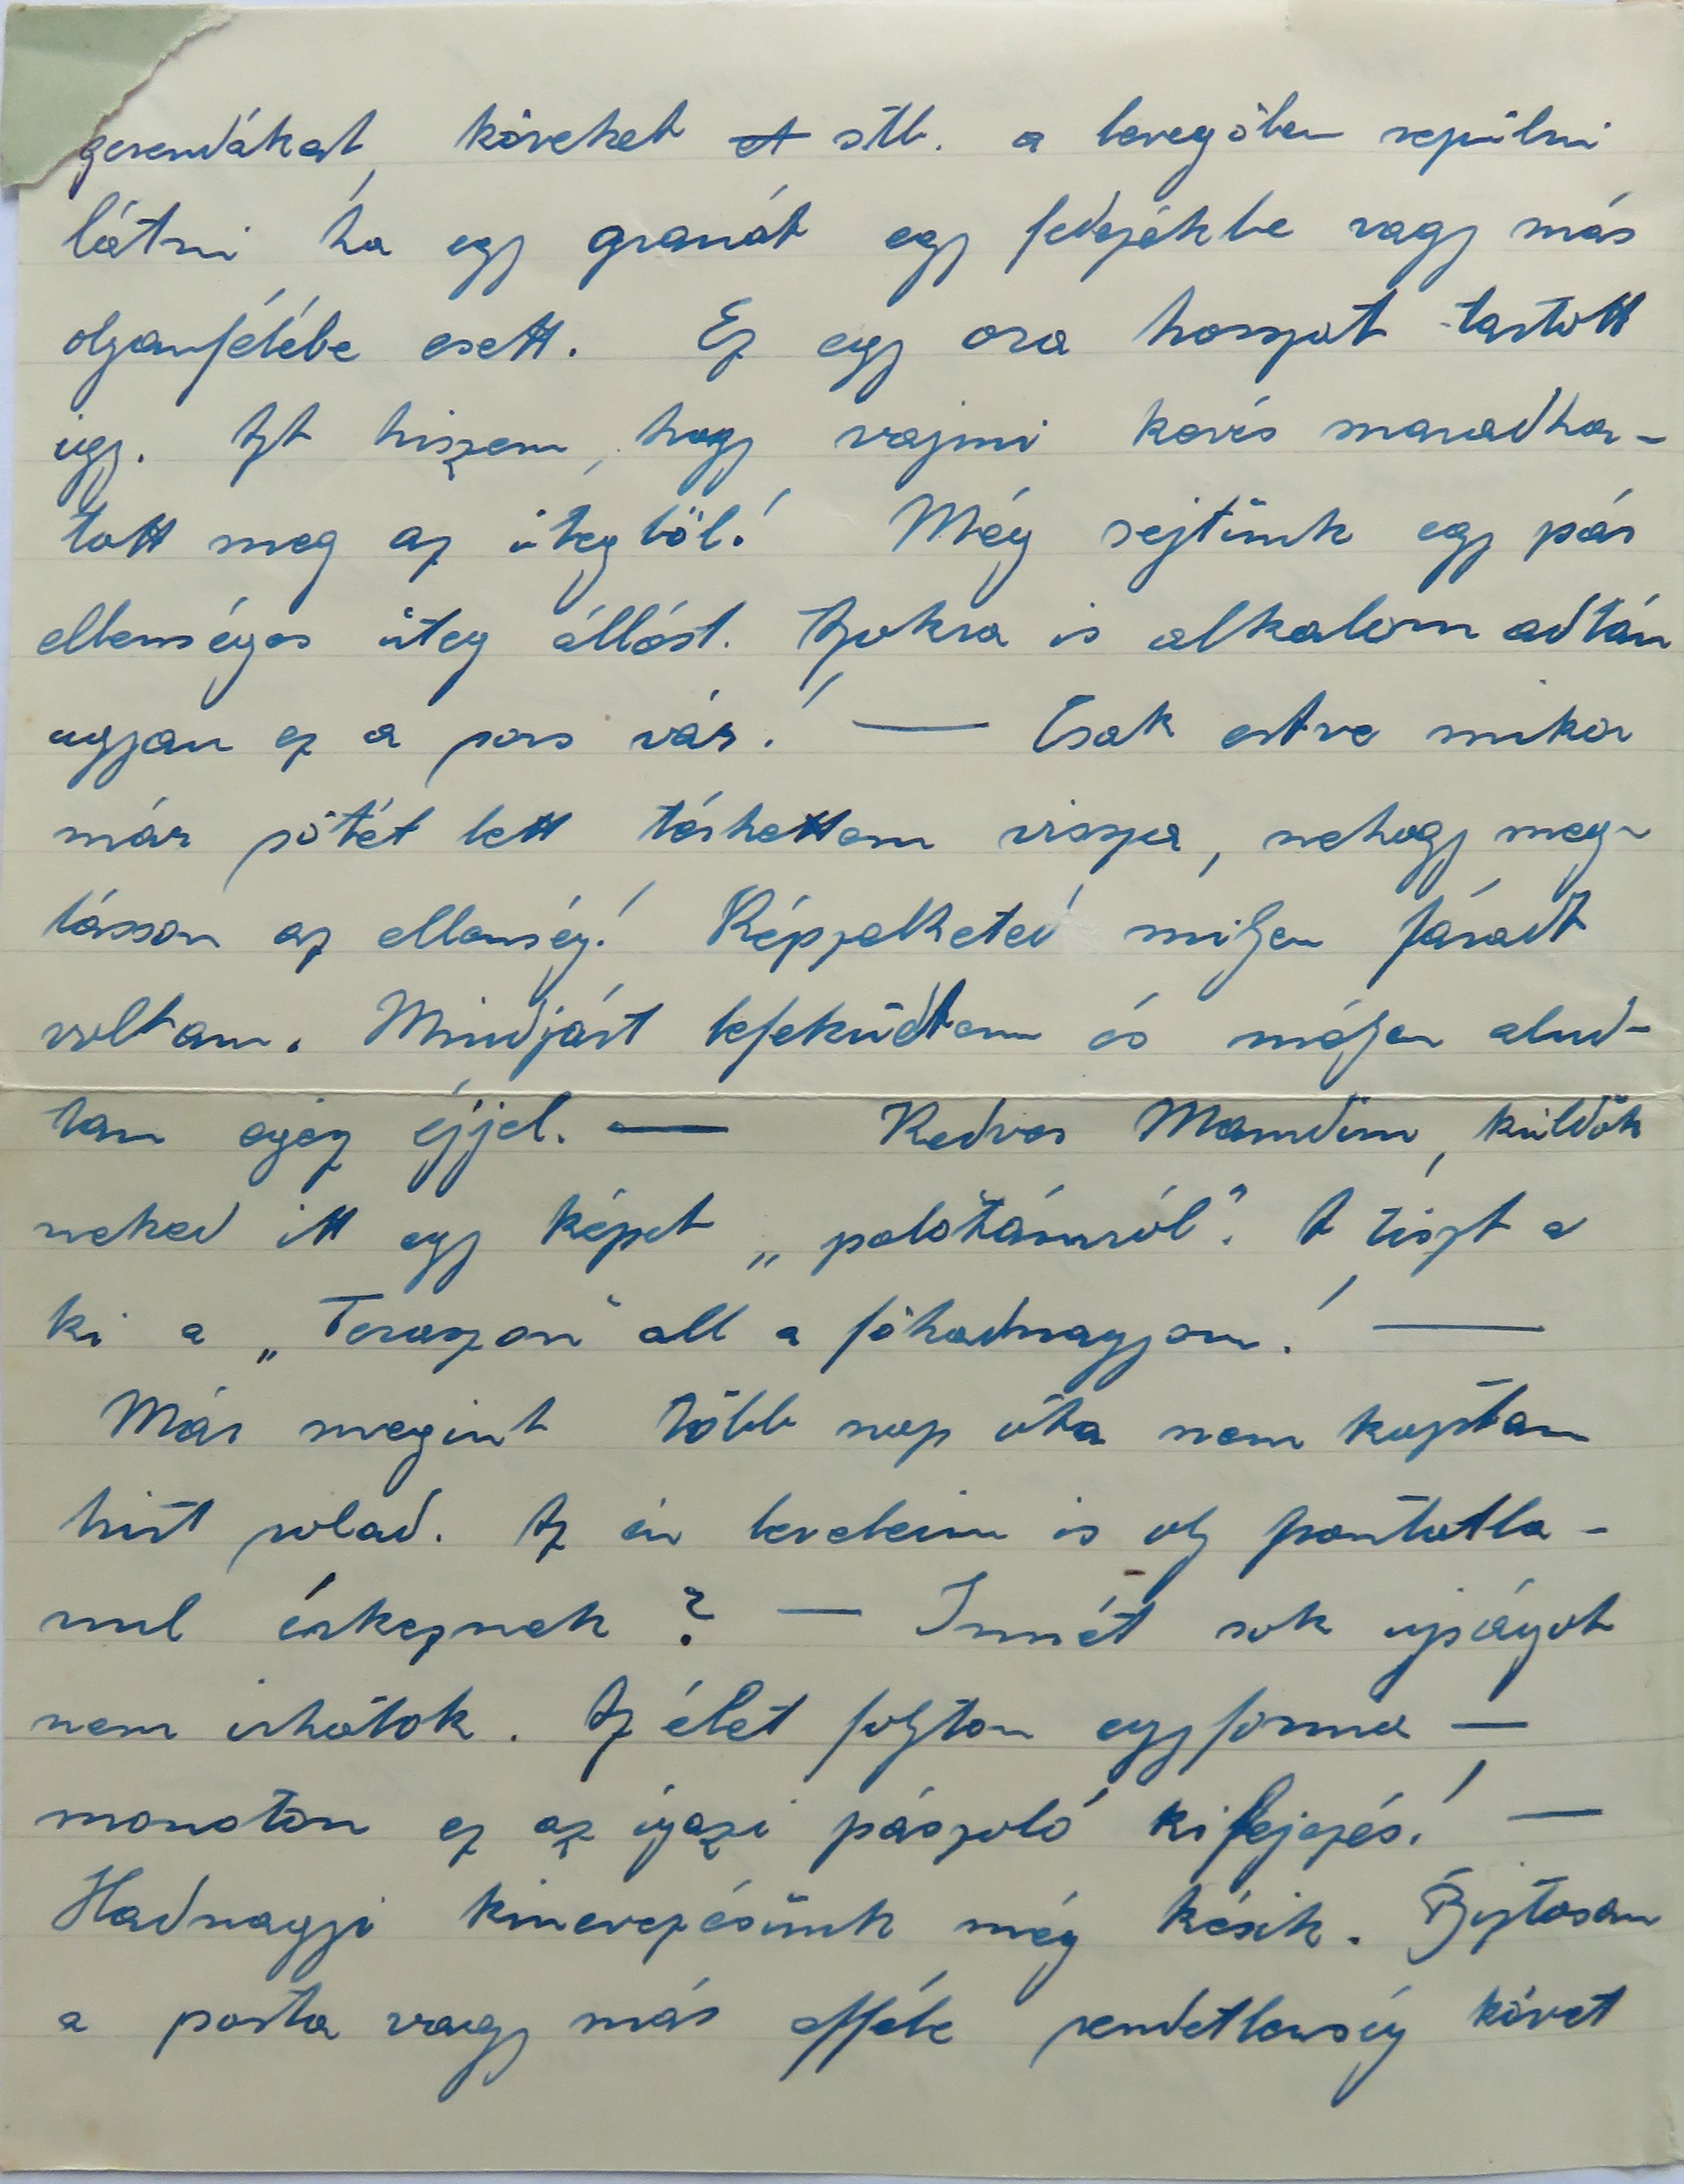 gerendákat, köveket stb. a levegőben repülni
látni ha egy granát egy fedezékbe vagy más
olyanfélébe esett. Ez egy ora hosszat tartott
igy. Azt hiszem, hogy vajmi kevés maradha-
tott meg az ütegből! Még sejtünk egy pár
ellenséges üteg állást. Azokra is alkalom adtán
ugyan ez a sors vár! — Csak estve mikor
már sötét lett térhettem vissza, nehogy meg-
lásson az ellenség! Képzelheted milyen fáradt
voltam. Mindjárt lefeküdtem és mélyen alud-
tam egész éjjel. — Kedves Mamdim, küldök
neked itt egy képet „palotámról". A tiszt a
ki a „Teraszon" all a főhadnagyom! —
Már megint több nap óta nem kaptam
hirt rolad. Az én leveleim is oly pontatla-
nul érkeznek? — Innét sok ujságot
nem irhatok. Az élet folyton egyforma —
monoton ez az igazi pászoló kifejezés! —
Hadnagyi kinevezésünk még késik. Biztosan
a posta vagy más efféle rendetlenség követ